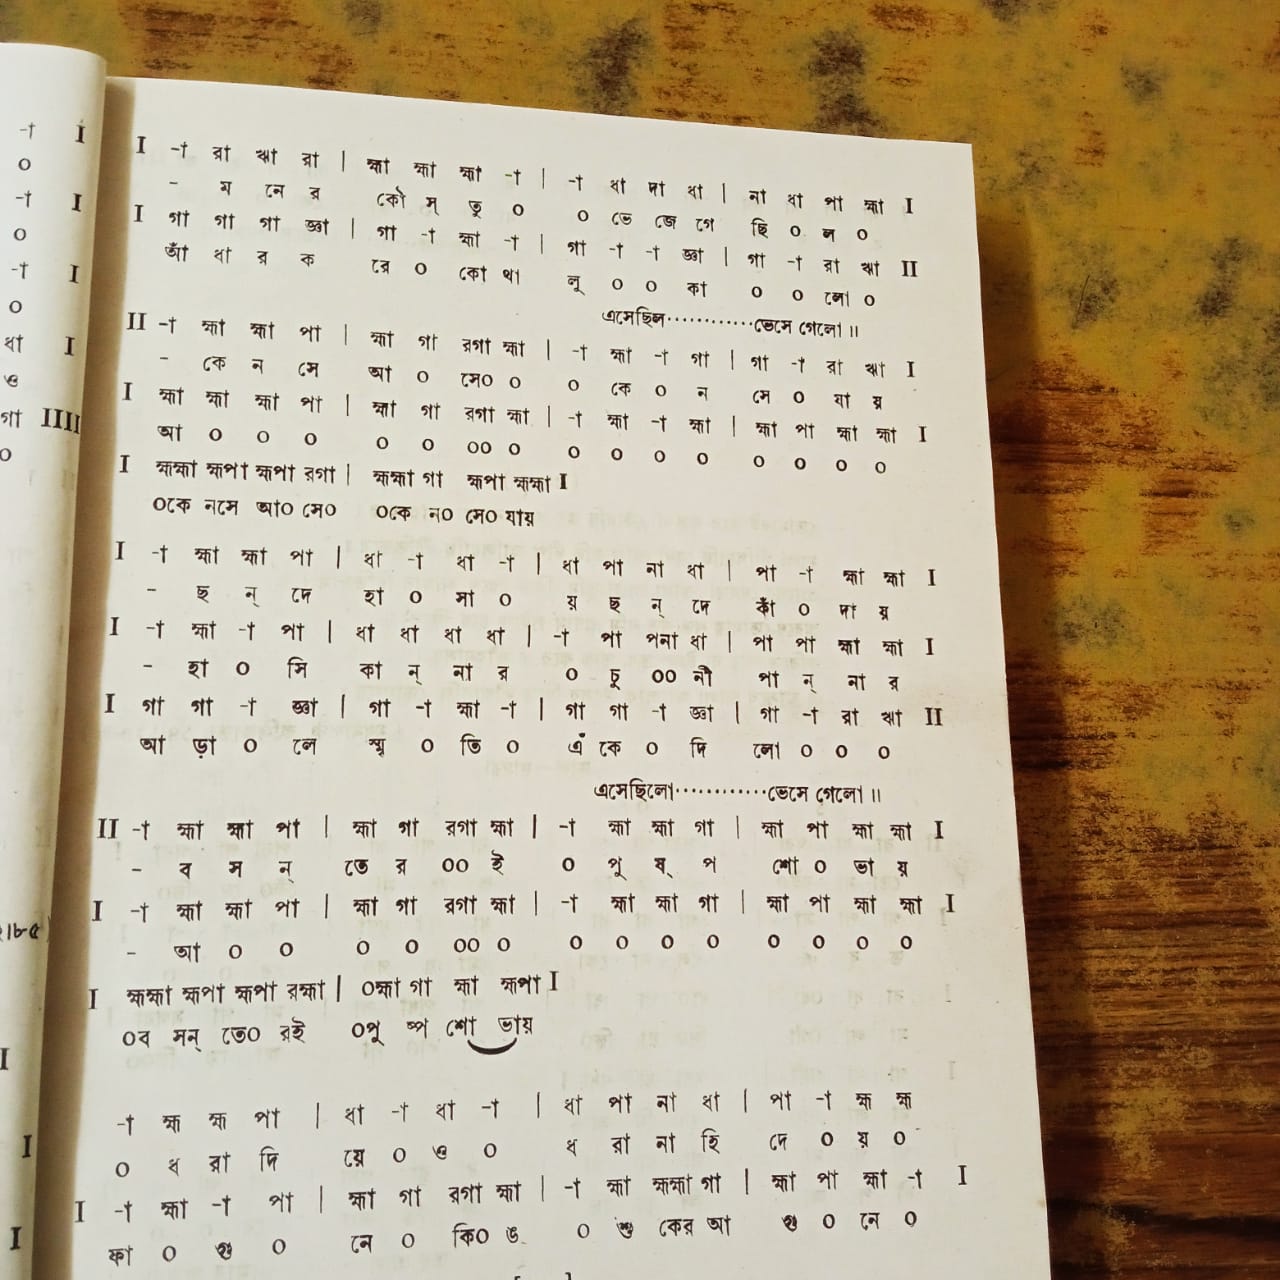 I -া রা ঋা রা | হ্মা হ্মা হ্মা -া | -া ধা দা ধা | না ধা পা হ্মা I
- ম নে র কৌ স্ তু ০ ০ ভে জে গে ছি ০ ল ০
I গা গা গা জ্ঞা | গা -া হ্মা -া | গা -া -া জ্ঞা | গা -া রা ঋা II
আঁ ধা র ক রে ০ কো থা লু ০ ০ কা ০ ০ লো ০
এসেছিল............ভেসে গেলো ॥
II -া হ্মা হ্মা পা | হ্মা গা রগা হ্মা | -া হ্মা -া গা | গা -া রা ঋা I
- কে ন সে আ ০ সে০ ০ ০ কে ০ ন সে ০ যা য়
I হ্মা হ্মা হ্মা পা | হ্মা গা রগা হ্মা | -া হ্মা -া হ্মা | হ্মা পা হ্মা হ্মা I
আ ০ ০ ০ ০ ০ ০০ ০ ০ ০ ০ ০ ০ ০ ০ ০
I হ্মহ্মা হ্মপা হ্মপা রগা | হ্মহ্মা গা হ্মপা হ্মহ্মা I
০কে নসে আ০ সে০ ০কে ন০ সে০ যায়
I -া হ্মা হ্মা পা | ধা -া ধা -া | ধা পা না ধা | পা -া হ্মা হ্মা I
- ছ ন্ দে হা ০ সা ০ য় ছ ন্ দে কাঁ ০ দা য়
I -া হ্মা -া পা | ধা ধা ধা ধা | -া পা পনা ধা | পা পা হ্মা হ্মা I
- হা ০ সি কা ন্ না র ০ চু ০০ নী পা ন্ না র
I গা গা -া জ্ঞা | গা -া হ্মা -া | গা গা -া জ্ঞা | গা -া রা ঋা II
আ ড়া ০ লে স্মৃ ০ তি ০ এঁ কে ০ দি লো ০ ০ ০
এসেছিলো............ভেসে গেলো ॥
II -া হ্মা হ্মা পা | হ্মা গা রগা হ্মা | -া হ্মা হ্মা গা | হ্মা পা হ্মা হ্মা I
- ব স ন্ তে র ০০ ই ০ পু ষ্ প শো ০ ভা য়
I -া হ্মা হ্মা পা | হ্মা গা রগা হ্মা | -া হ্মা হ্মা গা | হ্মা পা হ্মা হ্মা I
- আ ০ ০ ০ ০ ০০ ০ ০ ০ ০ ০ ০ ০ ০ ০
I হ্মহ্মা হ্মপা হ্মপা রহ্মা | ০হ্মা গা হ্মা হ্মপা I
০ব সন্ তে০ রই ০পু ষ্প শো ভায়
-া হ্ম হ্ম পা | ধা -া ধা -া | ধা পা না ধা | পা -া হ্ম হ্ম
০ ধ রা দি য়ে ০ ও ০ ধ রা না হি দে ০ য় ০
I -া হ্মা -া পা | হ্মা গা রগা হ্মা | -া হ্মা হ্মহ্মা গা | হ্মা পা হ্মা -া I
ফা ০ গু ০ নে ০ কি০ ঙ ০ শু কের আ গু ০ নে ০